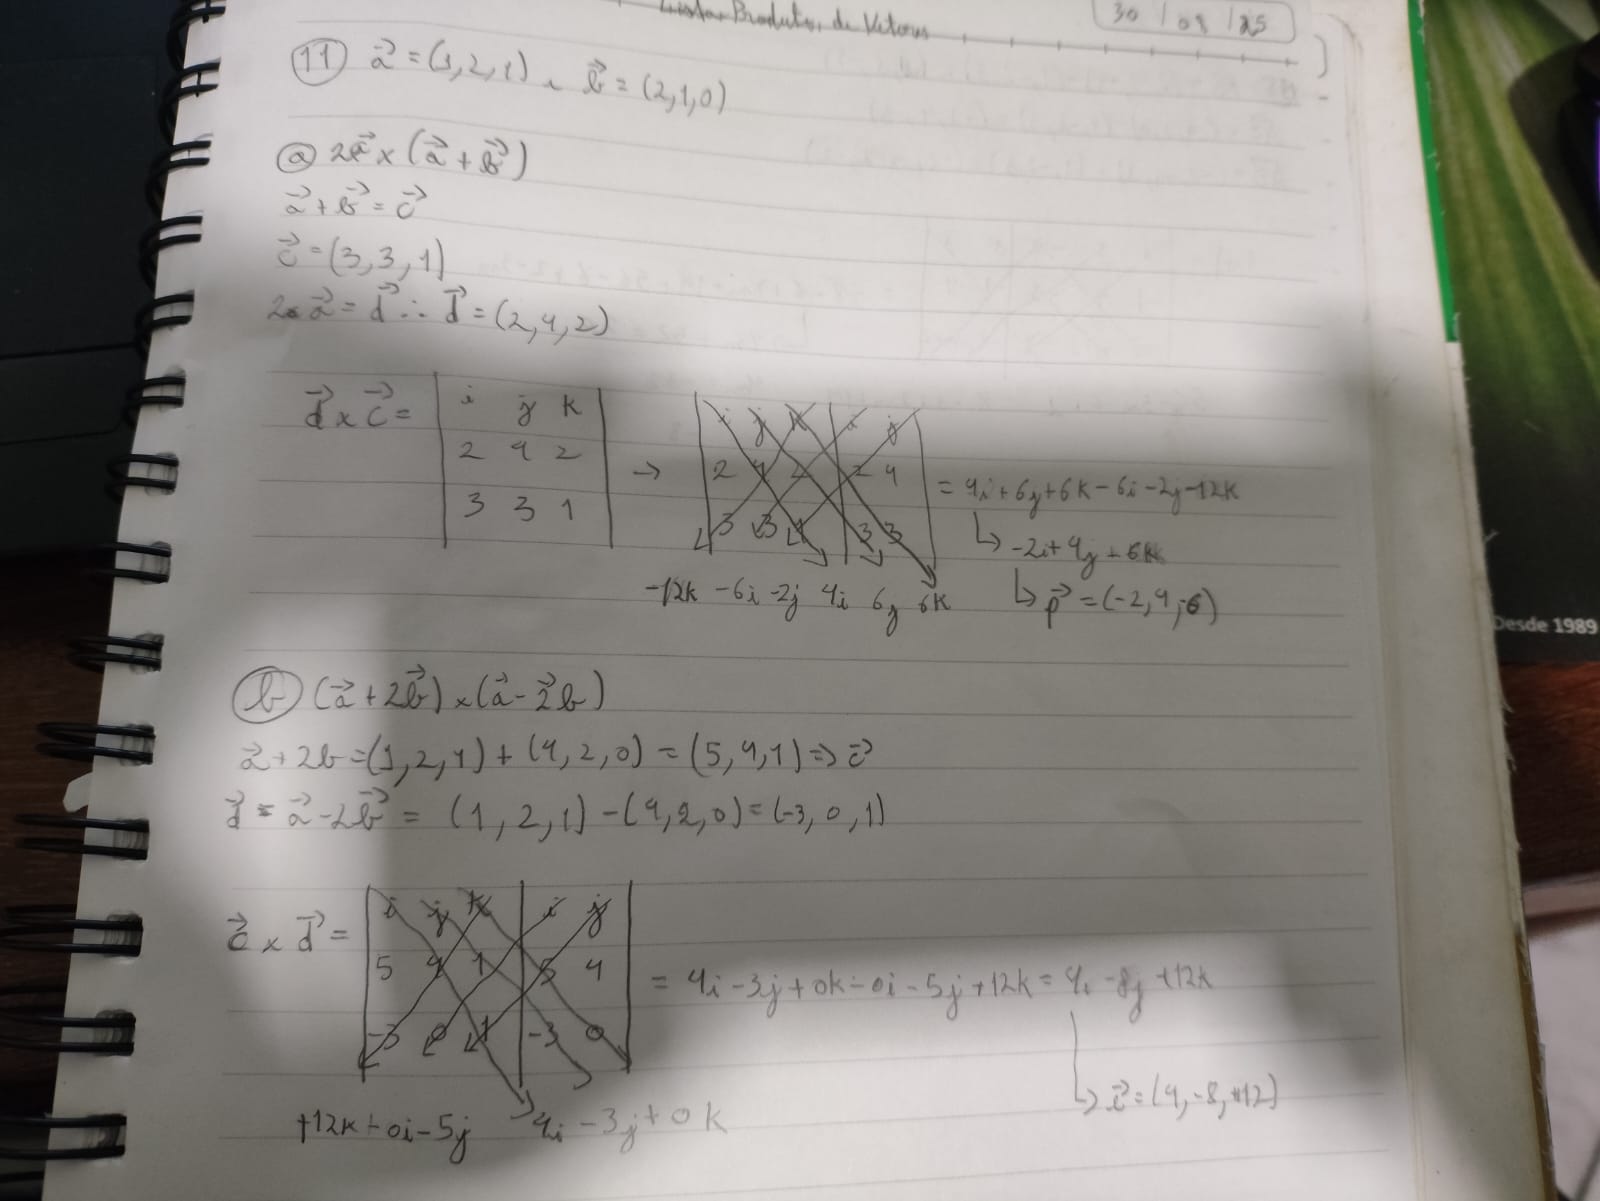 Lista Produtos de Vetores 30/08/25
11 a⃗ = (1,2,1) e b⃗ = (2,1,0)
a 2a⃗ x (a⃗ + b⃗)
a⃗ + b⃗ = c⃗
c⃗ = (3,3,1)
2·a⃗ = d⃗ ∴ d⃗ = (2,4,2)
d⃗ x c⃗ = | i j k | → | i j k | i j |
| 2 4 2 | | 2 4 2 | 2 4 | = 4i + 6j + 6k - 6i - 2j - 12k
| 3 3 1 | | 3 3 1 | 3 3 | ↳ -2i + 4j + 6k
-12k -6i -2j 4i 6j 6k ↳ p⃗ = (-2,4,-6)
b (a⃗ + 2b⃗) x (a⃗ - 2⃗b)
a⃗ + 2b = (1,2,1) + (4,2,0) = (5,4,1) => c⃗
d⃗ = a⃗ - 2b⃗ = (1,2,1) - (4,2,0) = (-3,0,1)
c⃗ x d⃗ = | i j k | i j |
| 5 4 1 | 5 4 | = 4i - 3j + 0k - 0i - 5j + 12k = 4i - 8j + 12k
| -3 0 1 | -3 0 |
+12k + 0i - 5j 4i - 3j + 0k ↳ = (4,-8,+12)
Desde 1989